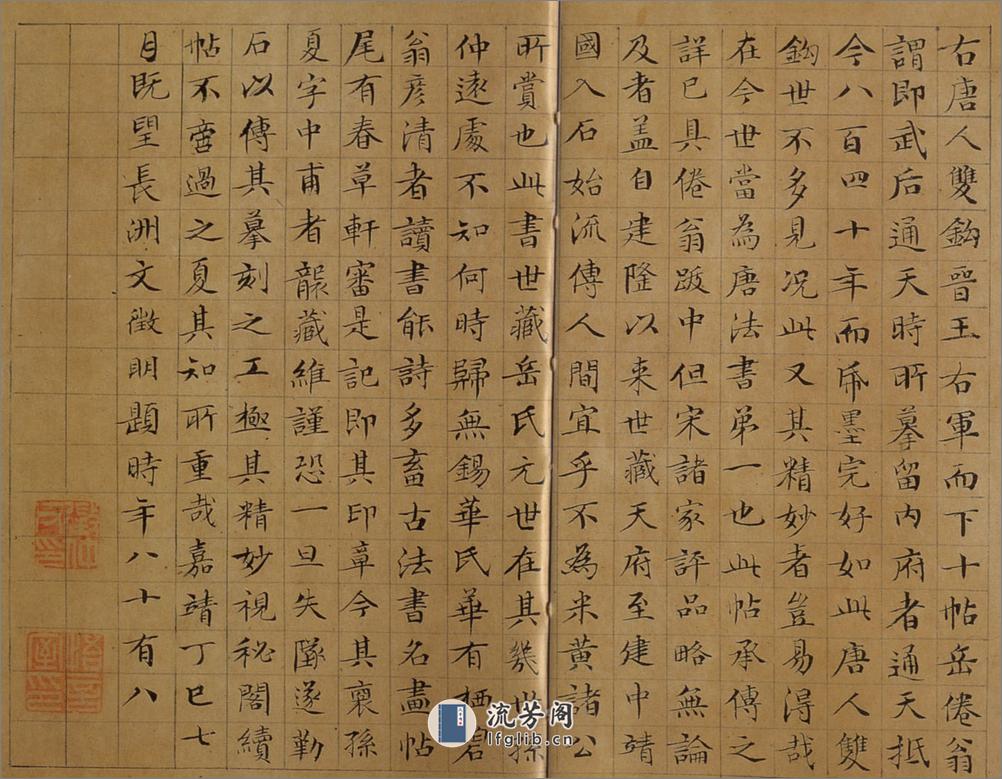 右唐人雙鈎晉王右軍而下十帖岳倦翁
謂即武后通天時所摹留內府者通天抵
今八百四十年而帋墨完好如此唐人雙
鈎世不多見況此又其精妙者豈易得哉
在今世當為唐法書第一也此帖承傳之
詳已具倦翁跋中但宋諸家評品略無論
及者盖自建隆以来世藏天府至建中靖
國入石始流傳人間宜乎不為米黄諸公
所賞也此書世藏岳氏元世在其幾世孫
仲遠處不知何時歸無錫華氏華有栖碧
翁彦清者讀書能詩多畜古法書名畫帖
尾有春草軒審是記即其印章今其裔孫
夏字中甫者襲藏維謹恐一旦失墜遂勒
石以傳其摹刻之工極其精妙視秘閣續
帖不啻過之夏其知所重哉嘉靖丁巳七
月既望長洲文徵明題時年八十有八
流芳阁
lfglib.cn